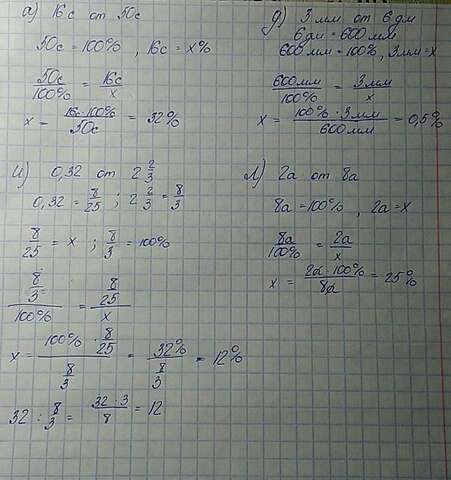 а) 16с от 50с
50с = 100% , 16с = x%
50с/100% = 16с/x
x = 16с·100%/50с = 32%
д) 3 мм от 6 дм
6 дм = 600 мм
600 мм = 100%, 3 мм = x
600мм/100% = 3мм/x
x = 100% · 3мм/600мм = 0,5%
и) 0,32 от 2 2/3
0,32 = 8/25 ; 2 2/3 = 8/3
8/25 = x ; 8/3 = 100%
8/3/100% = 8/25/x
x = 100% · 8/25/8/3 = 32%/8/3 = 12%
32 : 8/3 = 32 · 3/8 = 12
л) 2а от 8а
8а = 100% , 2а = x
8а/100% = 2а/x
x = 2а · 100%/8а = 25%